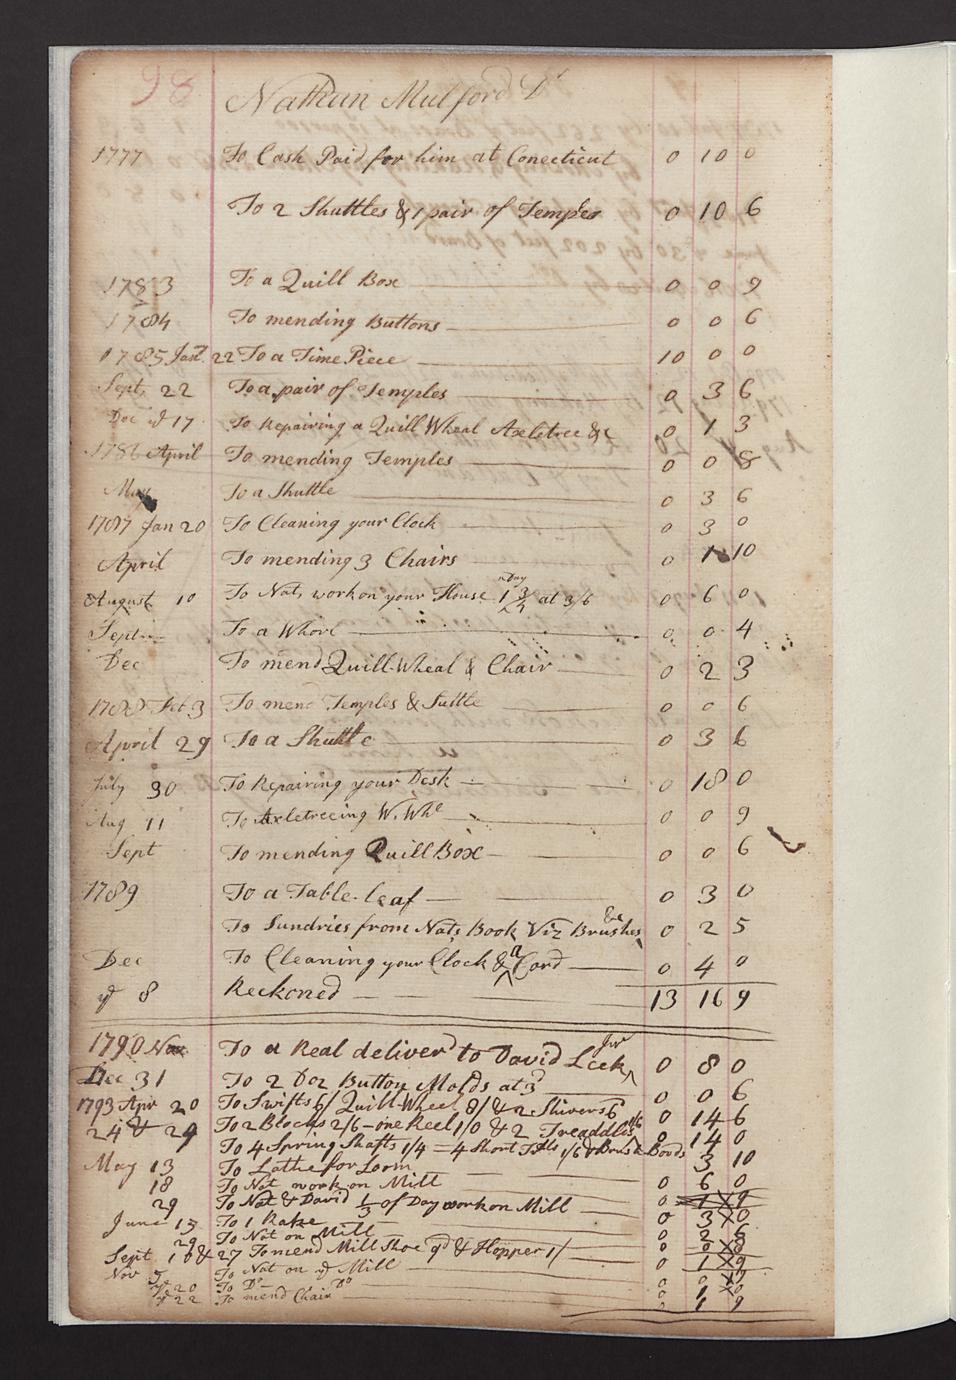 98
Nathan Mulford Dr
1777 To Cash Paid for him at Conecticut 0 10 0
To 2 Shuttles & 1 pair of Temples 0 10 6
1783 To a Quill Box 0 0 9
1784 To mending Buttons 0 0 6
1785 Jany 22 To a Time Piece 10 0 0
Sept, 22 To a pair of Temples 0 3 6
Dec ye 17 To Repairing a Quill Wheel Axeltree &c 0 1 3
1786 April To mending Temples 0 0 8
May To a Shuttle 0 3 6
1787 Jan 20 To Cleaning your Clock 0 3 0
April To mending 3 Chairs 0 1 10
August 10 To Nats, work on your House 1 3/4 Day at 3/6 0 6 0
Sept To a Whorl 0 0 4
Dec To mend Quill-Wheal & Chair 0 2 3
1788 Feb 3 To mend Temples & Suttle 0 0 6
April 29 To a Shuttle 0 3 6
July 30 To Repairing your Desk 0 18 0
Aug 11 To Axletreeing W. Whl 0 0 9
Sept To mending Quill Box 0 0 6
1789 To a Table-leaf 0 3 0
To Sundries from Nats, Book Viz Brushes &c 0 2 5
Dec To Cleaning your Clock & a Cord 0 4 0
ye 8 Reckoned 13 16 9
1790 Nov To a Real deliver'd to David Leek Jur 0 8 0
Dec 31 To 2 Doz Button Molds at 3d 0 0 6
1793 Apr 20 To Swifts 6/ Quill-Wheel 8/ & 2 Shivers 6 0 14 6
24 & 29 To 2 Blocks 2/6 - one Reel 10/ & 2 Treaddles 1/6 0 14 0
To 4 Spring Shafts 1/4 = 4 Short 1/6 & Brush Bords 3 10
May 13 To Lathe for Loom 0 6 0
18 To Nat work on Mill 0 1 9
29 To Nat & David 1/3 of Day work on Mill 0 3 0
June 15 To 1 Rake 0 2 6
29 To Nat on Mill 0
Sept 18 & 27 To mend Mill Shoe 9d & Hopper 1/ 0 1 9
Nov 5 To Nat on ye Mill 0
ye 20 To Do Do 0 1 0
ye 22 To mend Chair 0 1 9